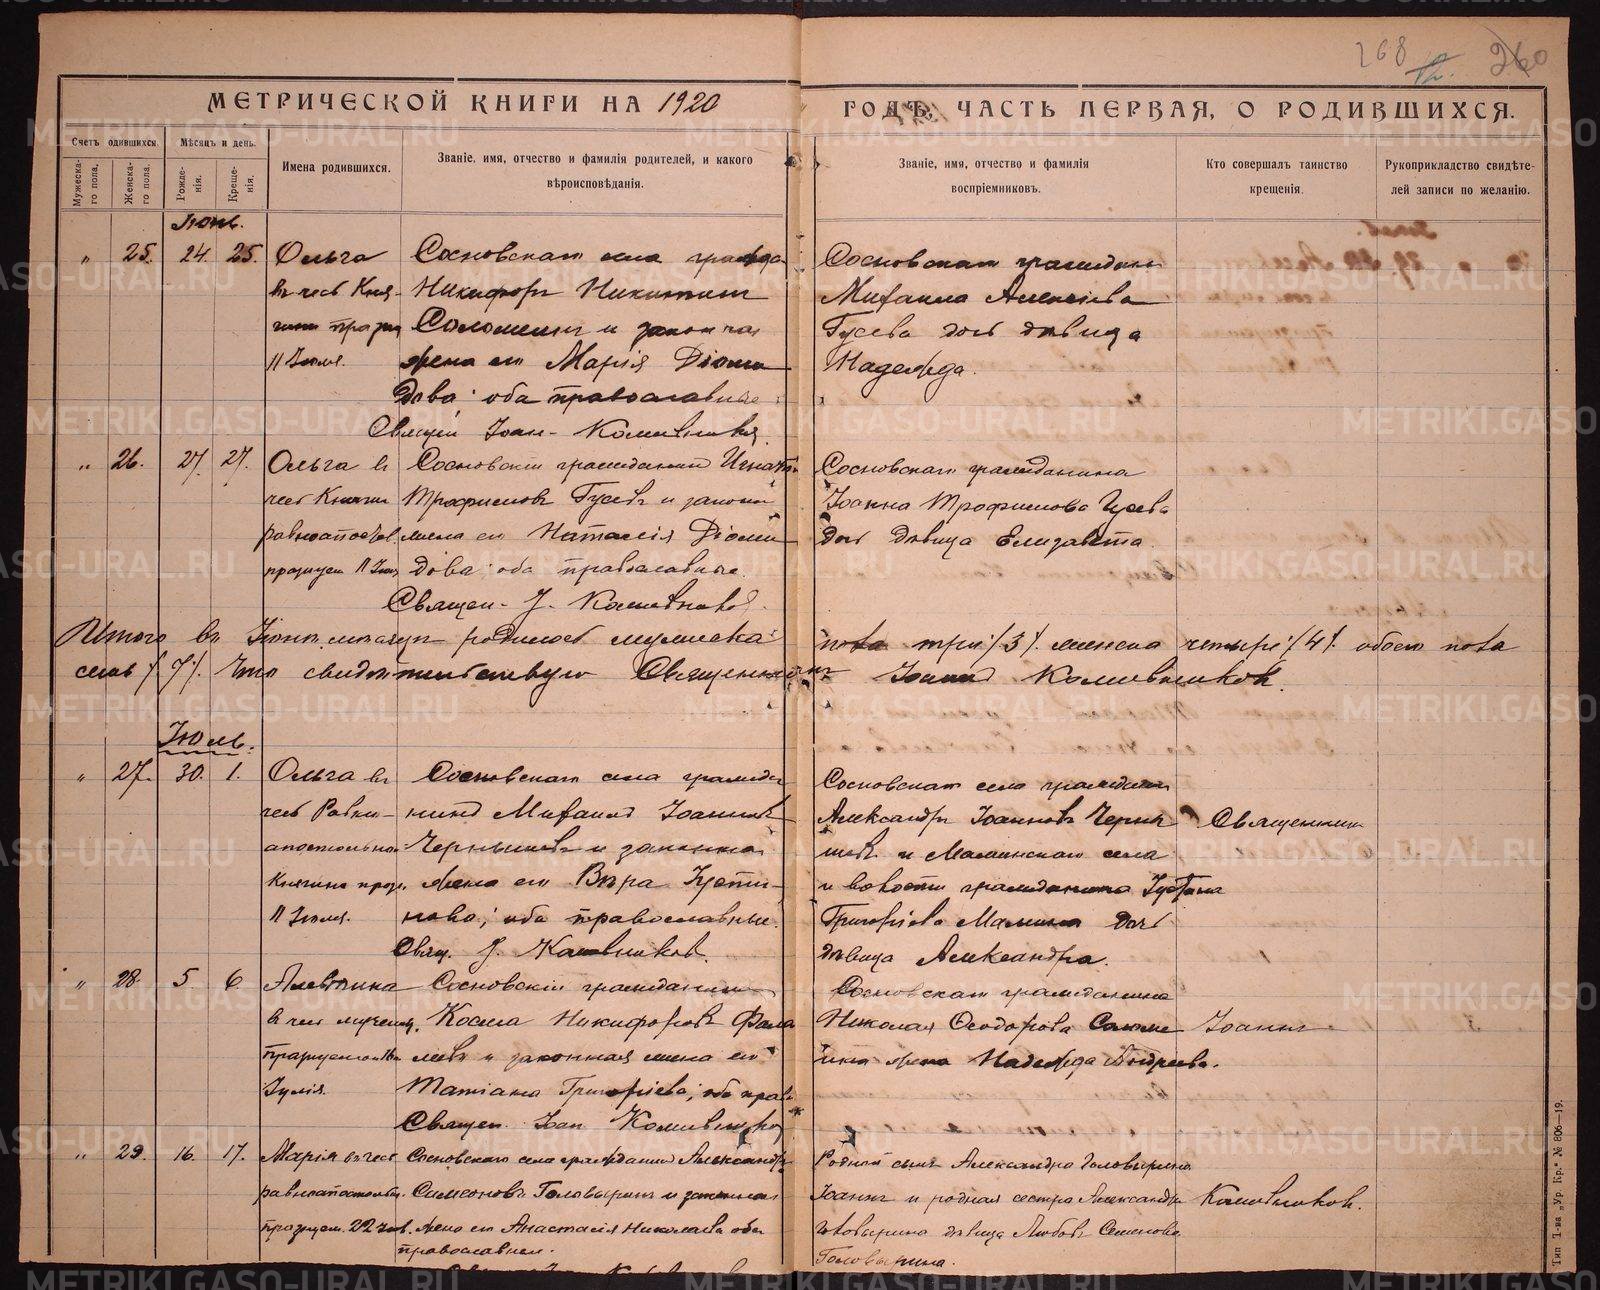 268 12. 260
МЕТРИЧЕСКОЙ КНИГИ НА 1920
ГОДЪ, ЧАСТЬ ПЕРВАЯ, О РОДИВШИХСЯ.
Счетъ одившихся.
Мужеска-го пола.
Женска-го пола.
Мѣсяцъ и день.
Рожде-нія.
Креще-нія.
Имена родившихся.
Званіе, имя, отчество и фамилія родителей, и какого
вѣроисповѣданія.
Званіе, имя, отчество и фамилія
воспріемниковъ.
Кто совершалъ таинство
крещенія.
Рукоприкладство свидѣте-
лей записи по желанію.
Іюнь.
" 25. 24. 25.
Ольга
въ чест Кня-
11 Іюля.
Сосновскаго села гражда
Никифоръ Никитинъ
Соломеинъ и законная
жена его Марія Діоми
дова; оба православные
Священ Іоан
Сосновскаго гражданина
Михаила Алексіева
Гусева дочь дѣвица
Надежда.
" 26. 27. 27.
Ольга въ
чест Княгини
равноапостол.
празнуем 11 Іюля
Сосновскій гражданинъ Игнатій
Трофимовъ Гусевъ и законная
жена его Наталія Діоми
дова; оба православные.
Священ. І.
Сосновскаго гражданина
Іоанна Трофимова Гусева
дочь дѣвица Елизавета
Итого въ Іюнѣ мѣсяцѣ родилось мужска
пола три /3/ женска четыре /4/ обоего пола
семь /7/. Что свидѣтельствую Священникъ
Іоаннъ
Іюль.
" 27. 30. 1.
Ольга въ
чест Равно-
апостольной
Княгини празн.
11 Іюля.
Сосновскаго села гражда
нинъ Михаилъ Іоанновъ
Чернышевъ и законная
жена его Вѣра Іусти-
нова; оба православные.
Свящ. І.
Сосновскаго села гражданинъ
Александръ Іоанновъ Черны
шевъ и Маминскаго села
и волости гражданина Іустина
Григоріева Мамина дочь
дѣвица Александра.
Священникъ
" 28. 5 6
Алевтина
въ чест мучениц.
Іулія.
Сосновскій гражданинъ
Косма Никифоровъ Фала
леевъ и законная жена его
Татіана Григоріева; оба прав
Священ. Іоан
Сосновскаго гражданина
Николая Ѳеодорова Соломе
ина жена Надежда Андреева.
Іоаннъ
" 29. 16. 17.
Марія въ чест
равноапостольн.
празнуем. 22 Іюл.
Сосновскаго села гражданинъ Александръ
Самсоновъ Головыринъ и законная
жена его Анастасія Николаева оба
православные.
Родной сынъ Александра Головырина
Іоаннъ и родная сестра Александра
Головырина дѣвица Любовь Семенова
Головырина.
Тип 1-ва „Ур. Кр.“ № 806—19.
METRIKI.GASO-URAL.RU